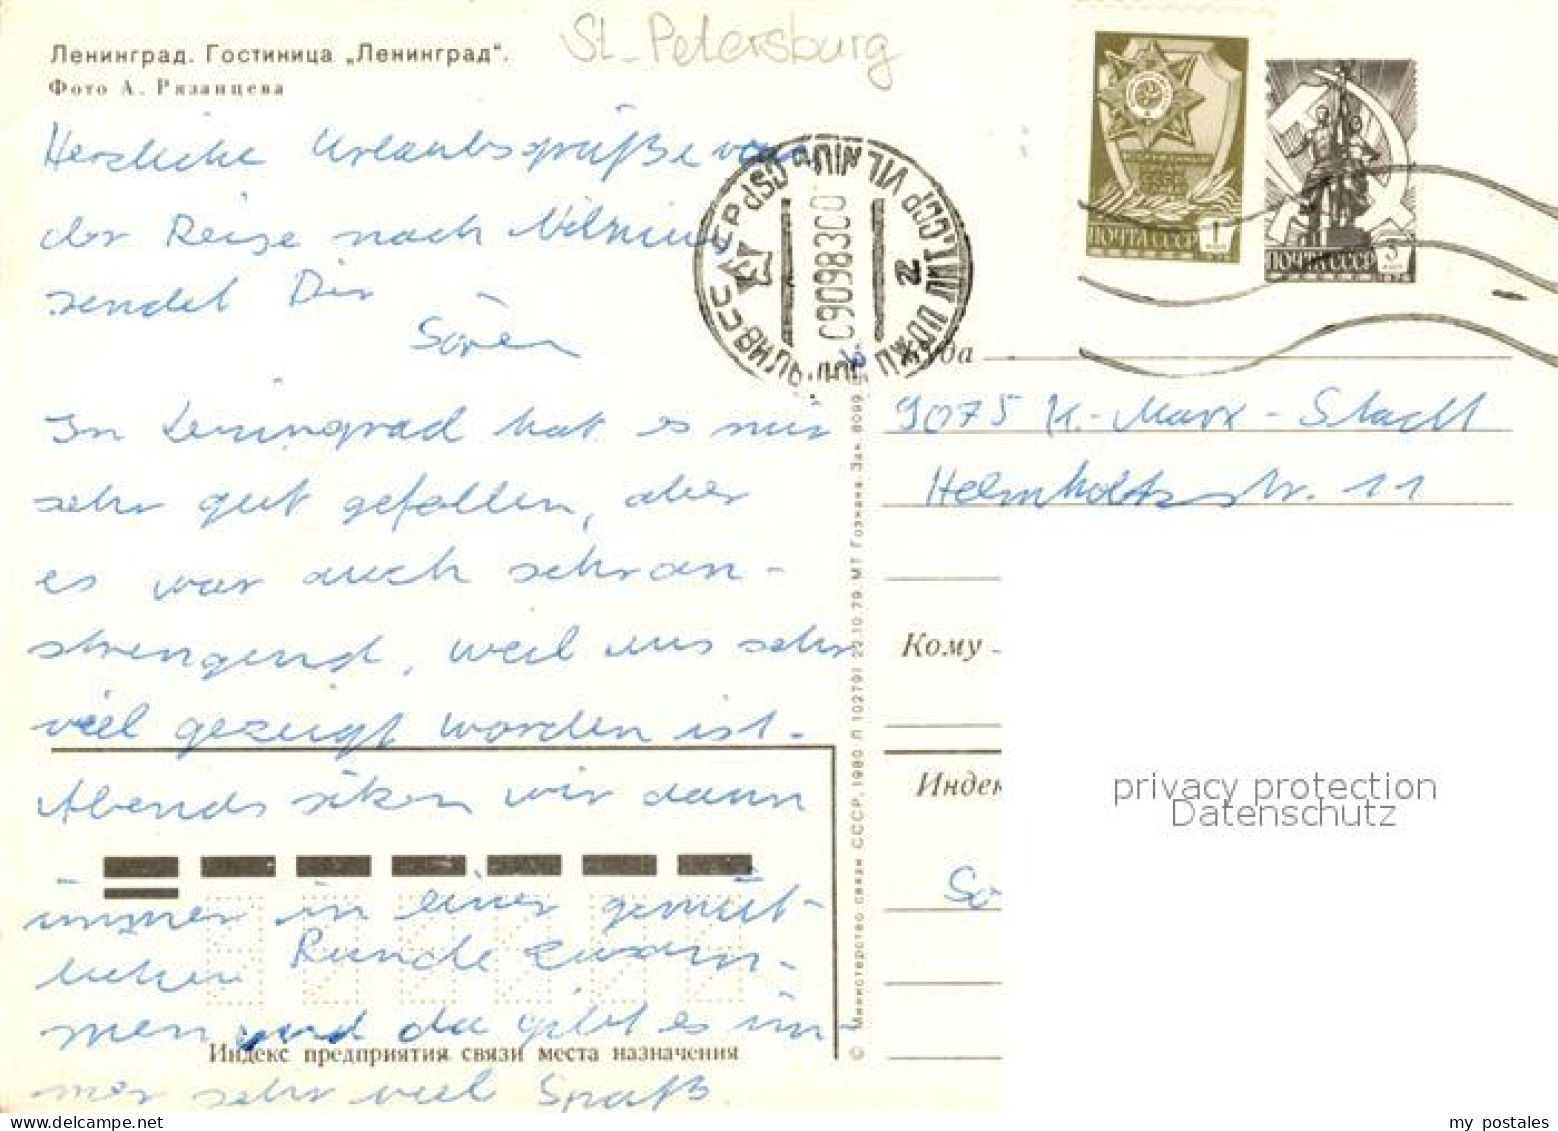 St. Petersburg
Ленинград. Гостиница „Ленинград“.
Фото А. Рязанцева
Herzliche Urlaubsgrüße von
der Reise nach Vilnius
sendet Dir
Sören
In Leningrad hat es mir
sehr gut gefallen, aber
es war auch sehr an-
strengend, weil uns sehr
viel gezeigt worden ist.
Abends sitzen wir dann
immer in einer gemüt-
lichen Runde zusam-
men und da gibt es im-
mer sehr viel Spaß
Индекс предприятия связи места назначения
© Министерство связи СССР, 1980 Л 102791 22.10.79 МТ Гознака. Зак. 8099.
ПОЧТА СССР 1
ПОЧТА СССР 3
Куда
9075 K.-Marx-Stadt
Helmholtzstr. 11
Кому
Индек
So
privacy protection
Datenschutz
my postales